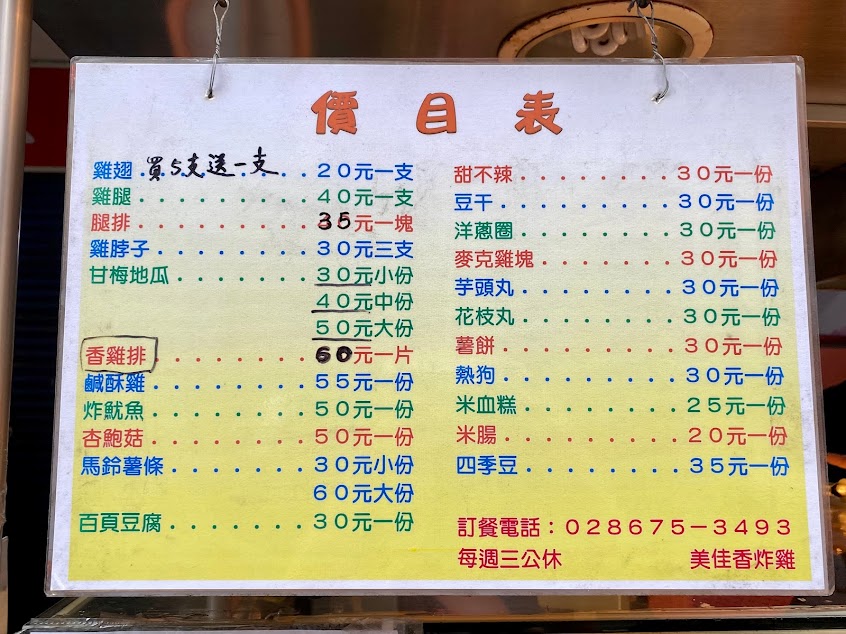 價目表
雞翅 買5支送一支 . . 20元一支
雞腿 . . . . . . . . . 40元一支
腿排 . . . . . . . . . 35元一塊
雞脖子 . . . . . . . . 30元三支
甘梅地瓜 . . . . . . . 30元小份
40元中份
50元大份
香雞排 . . . . . . . . 60元一片
鹹酥雞 . . . . . . . . 55元一份
炸魷魚 . . . . . . . . 50元一份
杏鮑菇 . . . . . . . . 50元一份
馬鈴薯條 . . . . . . . 30元小份
60元大份
百頁豆腐 . . . . . . . 30元一份
甜不辣 . . . . . . . . 30元一份
豆干 . . . . . . . . . 30元一份
洋蔥圈 . . . . . . . . 30元一份
麥克雞塊 . . . . . . . 30元一份
芋頭丸 . . . . . . . . 30元一份
花枝丸 . . . . . . . . 30元一份
薯餅 . . . . . . . . . 30元一份
熱狗 . . . . . . . . . 30元一份
米血糕 . . . . . . . . 25元一份
米腸 . . . . . . . . . 20元一份
四季豆 . . . . . . . . 35元一份
訂餐電話：028675－3493
每週三公休 美佳香炸雞